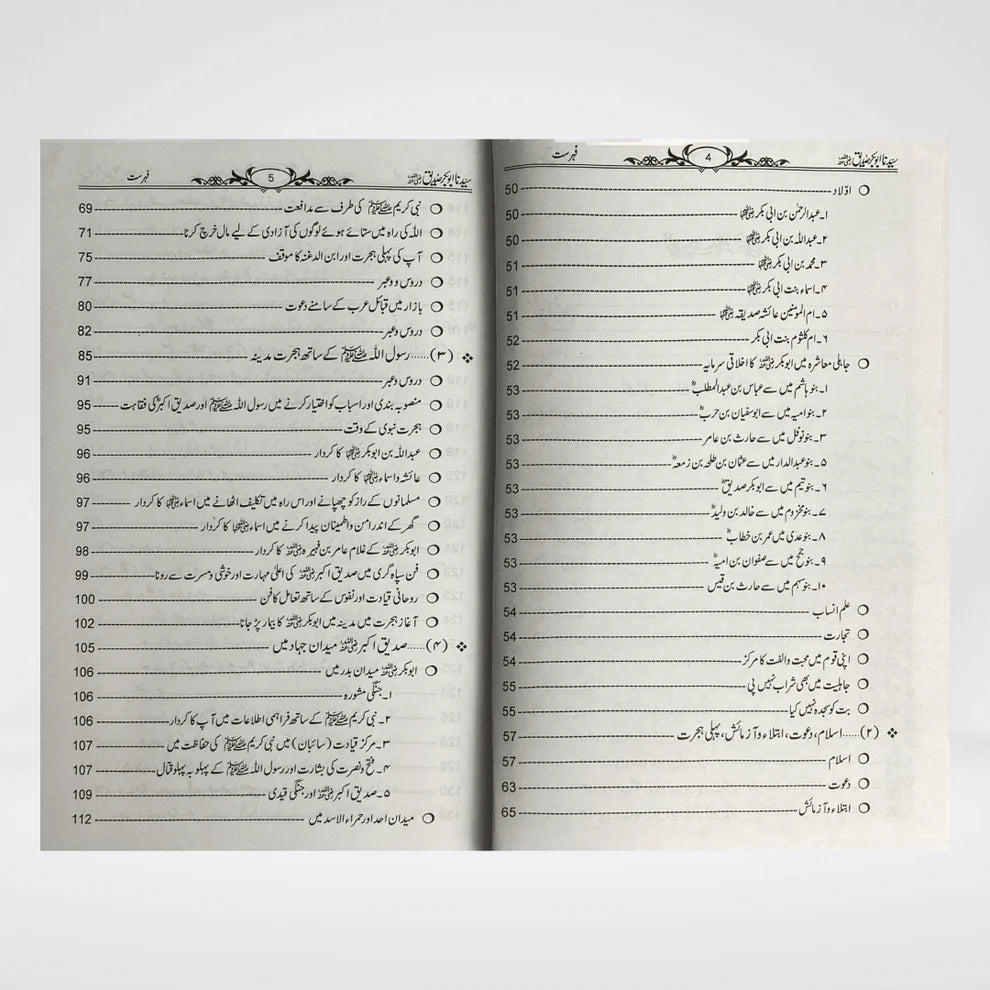 سیّدنا ابوبکر صدیق رضی اللہ عنہ 4 فہرست
○ اوّلاد 50
۱۔عبدالرحمٰن بن ابی بکر رضی اللہ عنہما 50
۲۔عبداللہ بن ابی بکر رضی اللہ عنہما 50
۳۔محمد بن ابی بکر رضی اللہ عنہما 51
۴۔اسماء بنت ابی بکر رضی اللہ عنہما 51
۵۔ام المومنین عائشہ صدیقہ رضی اللہ عنہا 51
۶۔ام کلثوم بنت ابی بکر 52
○ جاہلی معاشرہ میں ابوبکر رضی اللہ عنہ کا اخلاقی سرمایہ 52
۱۔ بنو ہاشم میں سے عباس بن عبدالمطلبؓ 53
۲۔ بنو امیہ میں سے ابوسفیان بن حربؓ 53
۳۔ بنو نوفل میں سے حارث بن عامر 53
۵۔ بنو عبدالدار میں سے عثمان بن طلحہ بن زمعہؓ 53
۶۔ بنو تیم میں سے ابوبکر صدیقؓ 53
۷۔ بنو مخزوم میں سے خالد بن ولیدؓ 53
۸۔ بنو عدی میں عمر بن خطابؓ 53
۹۔ بنو جمح میں سے صفوان بن امیہؓ 53
۱۰۔ بنو سہم میں سے حارث بن قیس 53
○ علم انساب 54
○ تجارت 54
○ اپنی قوم میں محبت و الفت کا مرکز 54
○ جاہلیت میں بھی شراب نہیں پی 55
○ بت کو سجدہ نہیں کیا 55
❖ (۲)......اسلام، دعوت، ابتلاء و آزمائش، پہلی ہجرت 57
○ اسلام 57
○ دعوت 63
○ ابتلاء و آزمائش 65
سیّدنا ابوبکر صدیق رضی اللہ عنہ 5 فہرست
○ نبی کریم ﷺ کی طرف سے مدافعت 69
○ اللہ کی راہ میں ستائے ہوئے لوگوں کی آزادی کے لیے مال خرچ کرنا 71
○ آپ کی پہلی ہجرت اور ابن الدغنہ کا موقف 75
○ دروس و عبر 77
○ بازار میں قبائل عرب کے سامنے دعوت 80
○ دروس و عبر 82
❖ (۳)......رسول اللہ ﷺ کے ساتھ ہجرت مدینہ 85
○ دروس و عبر 91
○ منصوبہ بندی اور اسباب کو اختیار کرنے میں رسول اللہ ﷺ اور صدیق اکبرؓ کی فقاہت 95
○ ہجرت نبوی کے وقت 95
○ عبداللہ بن ابوبکر رضی اللہ عنہما کا کردار 96
○ عائشہ و اسماء رضی اللہ عنہما کا کردار 96
○ مسلمانوں کے راز کو چھپانے اور اس راہ میں تکلیف اٹھانے میں اسماء رضی اللہ عنہا کا کردار 97
○ گھر کے اندر امن و اطمینان پیدا کرنے میں اسماء رضی اللہ عنہا کا کردار 97
○ ابوبکر رضی اللہ عنہ کے غلام عامر بن فہیرہ رضی اللہ عنہ کا کردار 98
○ فن سپاہ گری میں صدیق اکبر رضی اللہ عنہ کی اعلیٰ مہارت اور خوشی و مسرت سے رونا 99
○ روحانی قیادت اور نفوس کے ساتھ تعامل کا فن 100
○ آغاز ہجرت میں مدینہ میں ابوبکر رضی اللہ عنہ کا بیمار پڑ جانا 102
❖ (۴)......صدیق اکبر رضی اللہ عنہ میدان جہاد میں 105
○ ابوبکر رضی اللہ عنہ میدان بدر میں 106
۱۔ جنگی مشورہ 106
۲۔ نبی کریم ﷺ کے ساتھ فراہمی اطلاعات میں آپ کا کردار 106
۳۔ مرکز قیادت (سائبان) میں نبی کریم ﷺ کی حفاظت میں 107
۴۔ فتح و نصرت کی بشارت اور رسول اللہ ﷺ کے پہلو بہ پہلو قتال 107
۵۔ صدیق اکبر رضی اللہ عنہ اور جنگی قیدی 109
○ میدان احد اور حمراء الاسد میں 112